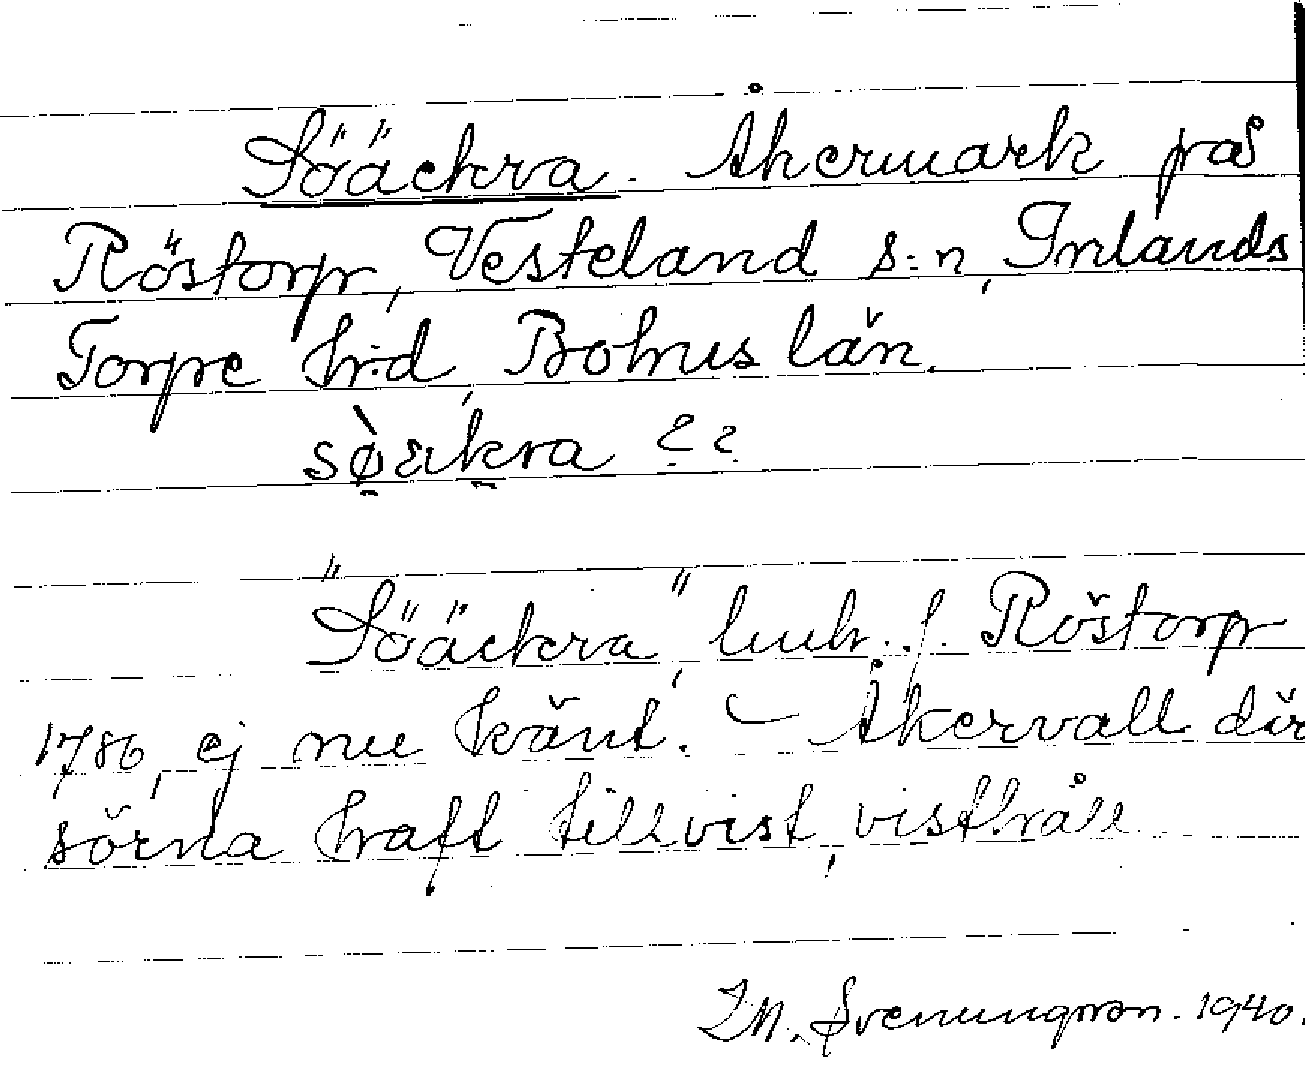 Sööäckra. Åkermark på
Röstorp, Vesteland s:n, Inlands
Torpe h:d, Bohuslän.
sø̀ækra ??
"Söäckra", luch. f. Röstorp
1786, ej nu känt. – Åkervall där
sörna haft tillvist, visthåll
I M. Svenungsson. 1940.